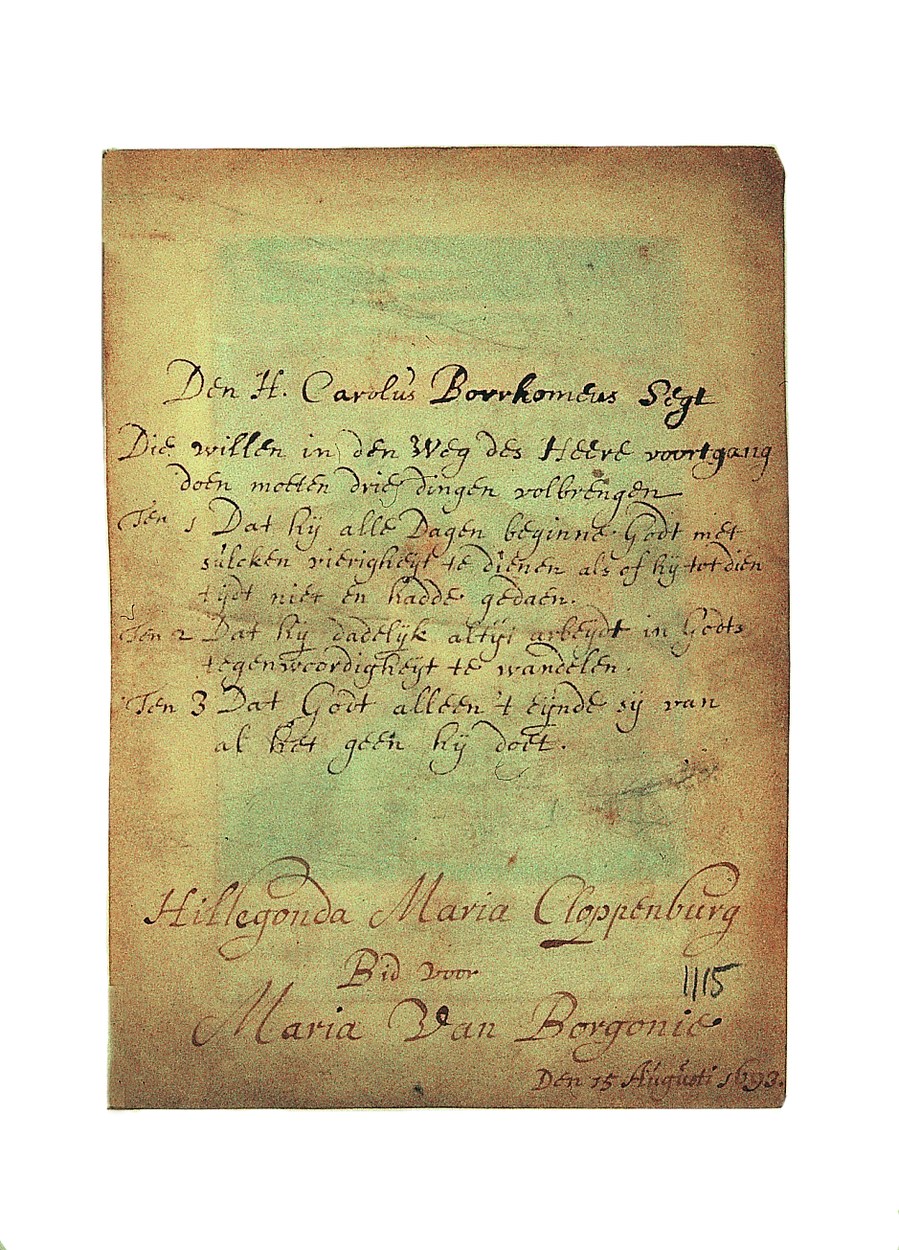 Den H. Carolus Borrhomeus Segt
Die willen in den Weg des Heere voortgang
doen moeten drie dingen volbrengen
Ten 1 Dat hij alle Dagen beginne Godt met
sulcken vierigheyt te dienen als of hij tot dien
tijdt niet en hadde gedaen.
Ten 2 Dat hij dadelijk altijt arbeydt in Godts
tegenwoordigheyt te wandelen.
Ten 3 Dat Godt alleen 't eijnde sij van
al het geen hij doet.
Hillegonda Maria Cloppenburg
Bid voor
1115
Maria Van Borgonie
Den 15 Augusti 1693.